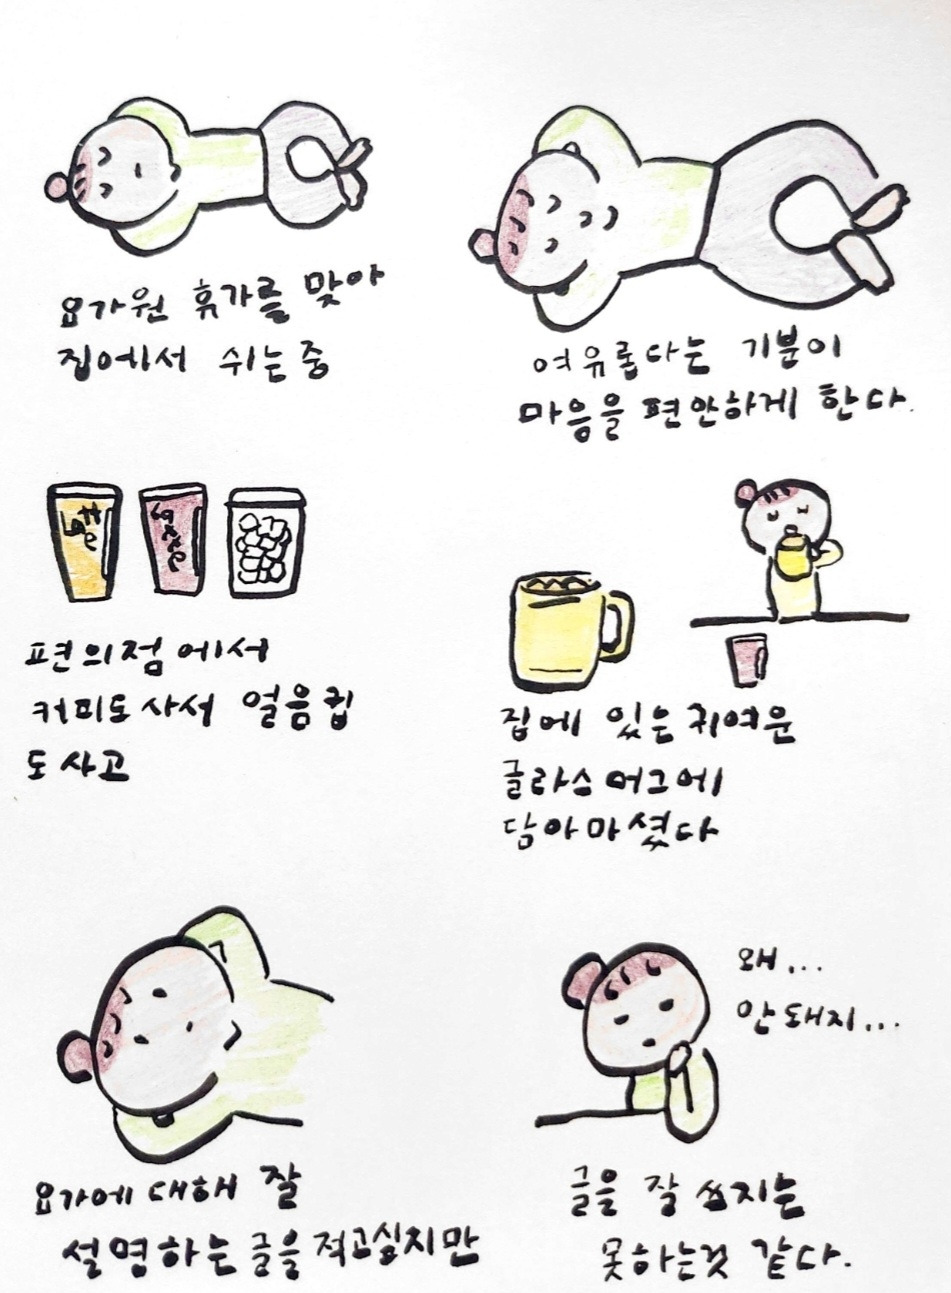 요가원 휴가를 맞아
집에서 쉬는 중
여유롭다는 기분이
마음을 편안하게 한다.
Latte
Latte
편의점에서
커피도 사서 얼음컵
도 사고
집에 있는 귀여운
글라스 머그에
담아 마셨다
요가에 대해 잘
설명하는 글을 적고싶지만
왜...
안 돼지...
글을 잘 쓰지는
못하는것 같다.